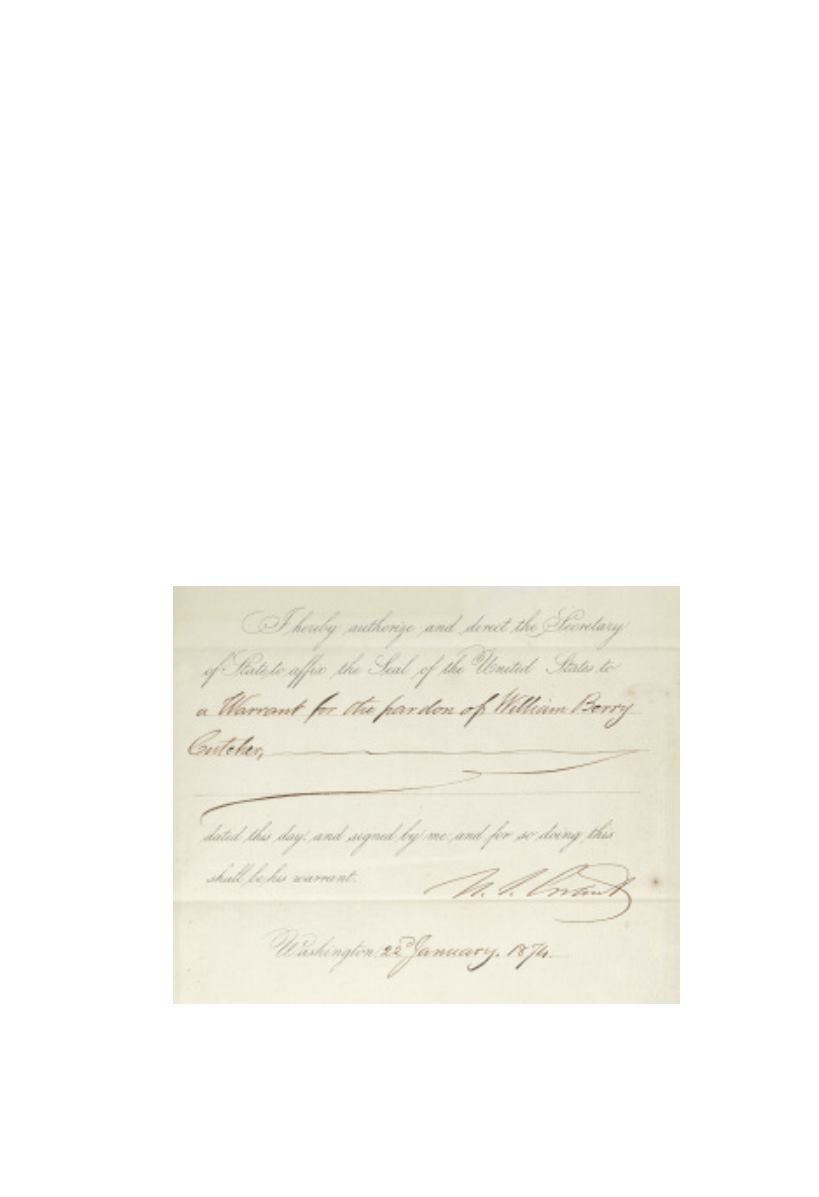 I hereby authorize and direct the Secretary
of State to affix the Seal of the United States to
a Warrant for the pardon of William Berry
Cutcher,
dated this day, and signed by me: and for so doing this
shall be his warrant.
U. S. Grant
Washington, 22d January, 1874.